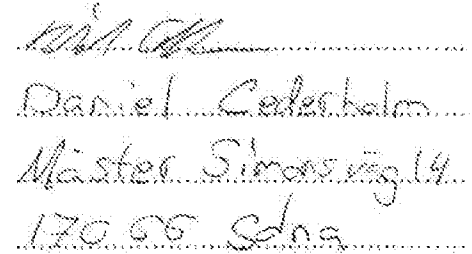 Daniel Cederholm
Mäster Simons väg 14
170 66 Solna